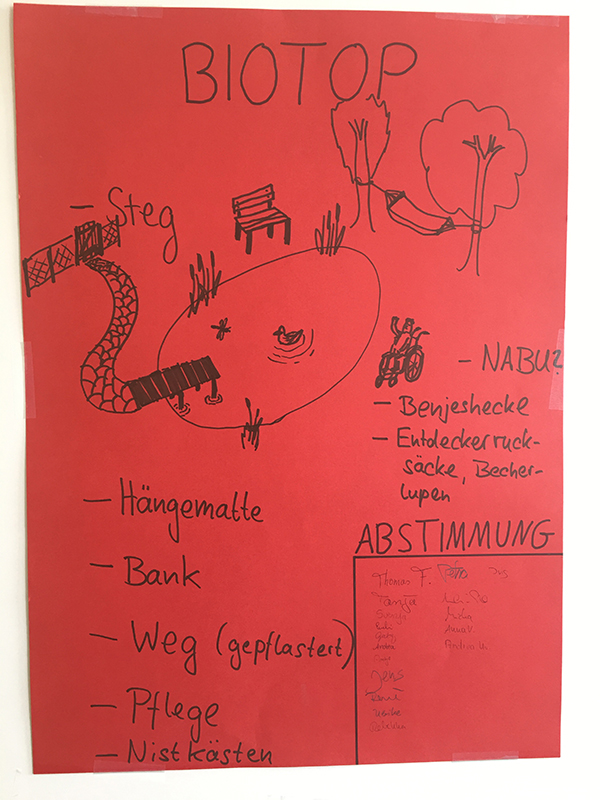 BIOTOP
- Steg
- NABU?
- Benjeshecke
- Entdeckerruck-
säcke, Becher-
lupen
- Hängematte
- Bank
- Weg (gepflastert)
- Pflege
- Nistkästen
ABSTIMMUNG
Thomas F. Petra
Tanja
Svenja
Anna V.
Andrea
Jens